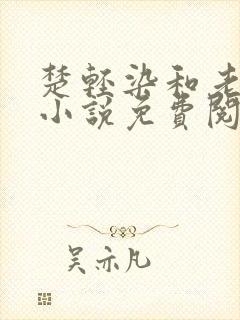 楚轻染和老
小说免费阅
吴亦凡